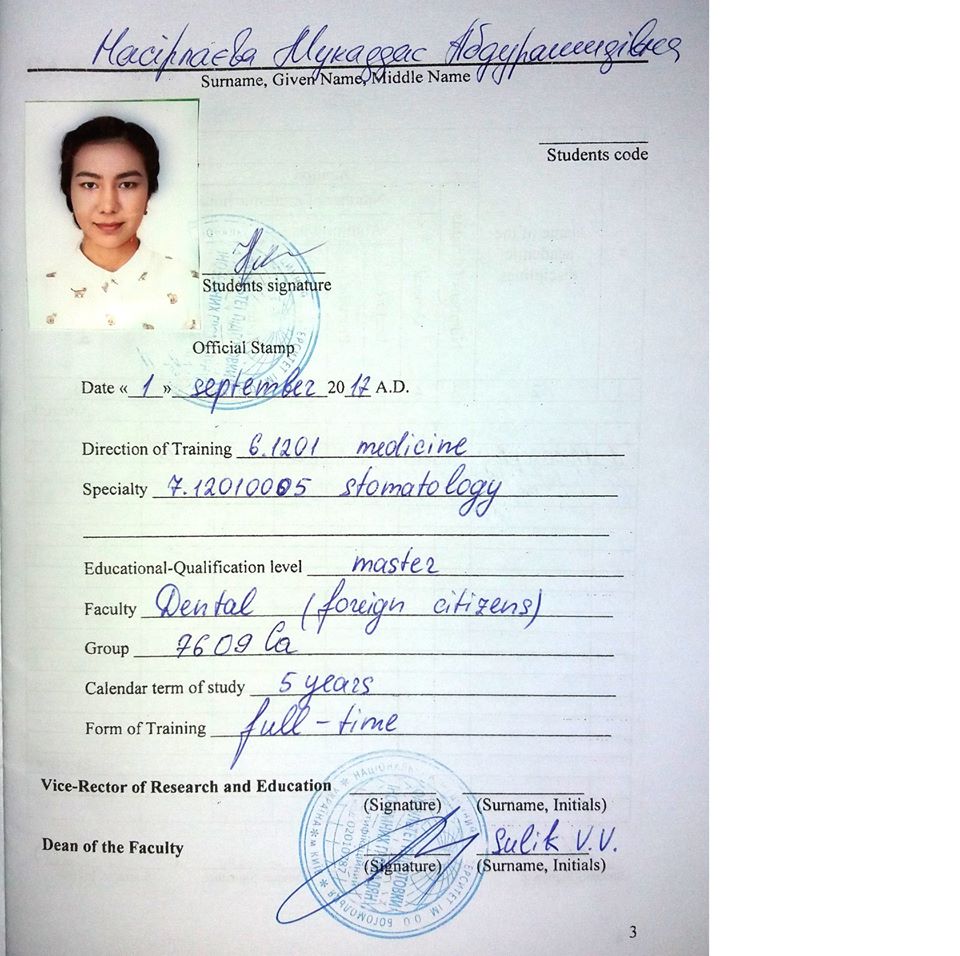 Насірлаєва Мукаддас Абдурашидівна
Surname, Given Name, Middle Name
Students code
Students signature
Official Stamp
Date « 1 » september 20 17 A.D.
Direction of Training 6.1201 medicine
Specialty 7.12010005 stomatology
Educational-Qualification level master
Faculty Dental (foreign citizens)
Group 7609 Ca
Calendar term of study 5 years
Form of Training full-time
Vice-Rector of Research and Education
(Signature) (Surname, Initials)
Dean of the Faculty Sulik V.V.
(Signature) (Surname, Initials)
3